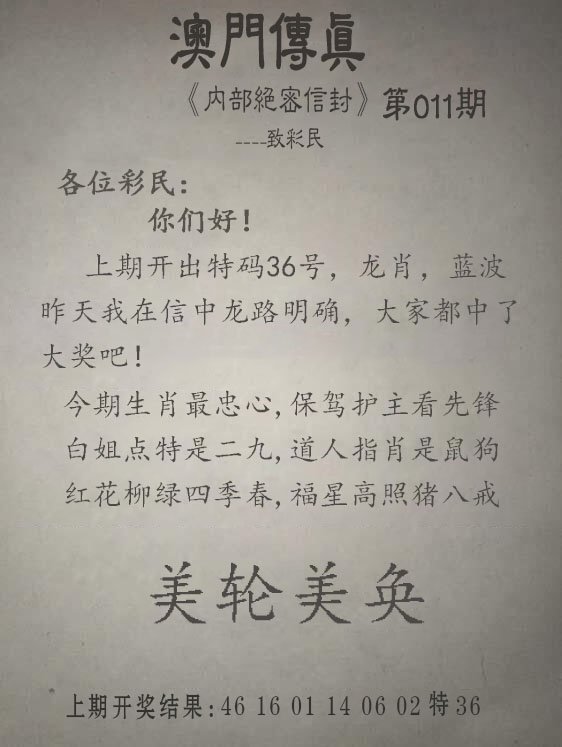 澳門傳眞
《内部絕密信封》第011期
----致彩民
各位彩民：
你们好！
上期开出特码36号，龙肖，蓝波
昨天我在信中龙路明确，大家都中了
大奖吧！
今期生肖最忠心,保驾护主看先锋
白姐点特是二九,道人指肖是鼠狗
红花柳绿四季春,福星高照猪八戒
美轮美奂
上期开奖结果:46 16 01 14 06 02 特 36